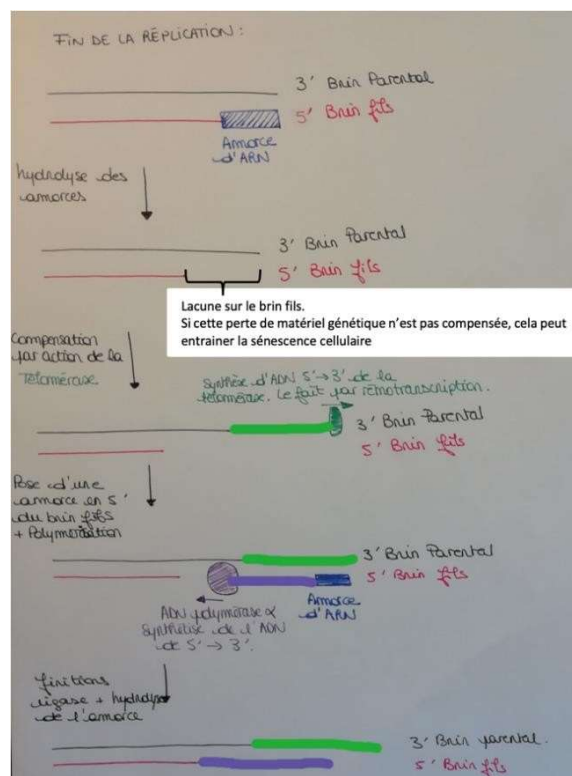 FIN DE LA RÉPLICATION :
3' Brin Parental
5' Brin fils
Amorce
d'ARN
hydrolyse des
amorces
3' Brin Parental
5' Brin fils
Lacune sur le brin fils.
Si cette perte de matériel génétique n'est pas compensée, cela peut
entrainer la sénescence cellulaire
Compensation
par action de la
Télomérase
Synthèse d'ADN 5' → 3' de la
télomérase. Le fait par rétrotranscription.
3' Brin Parental
5' Brin fils
Pose d'une
amorce en 5'
du brin fils
+ Polymérisation
3' Brin Parental
5' Brin fils
ADN polymérase α
Synthétise de l'ADN
de 5' → 3'.
Amorce
d'ARN
finitions
ligase + hydrolyse
de l'amorce
3' Brin parental.
5' Brin fils